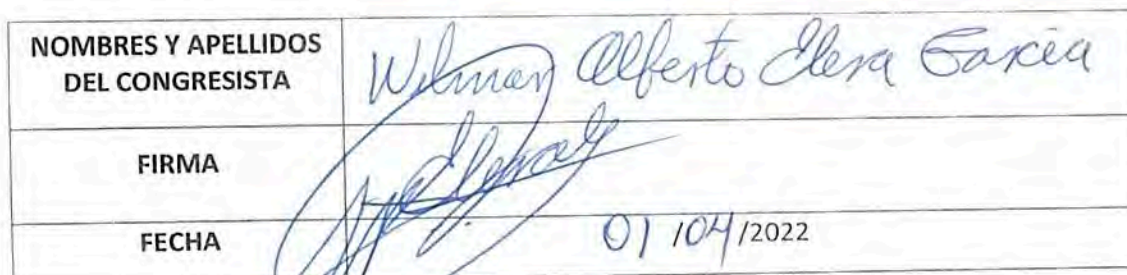 NOMBRES Y APELLIDOS
DEL CONGRESISTA
Wilmar Alberto Elera García
FIRMA
FECHA
01/04/2022